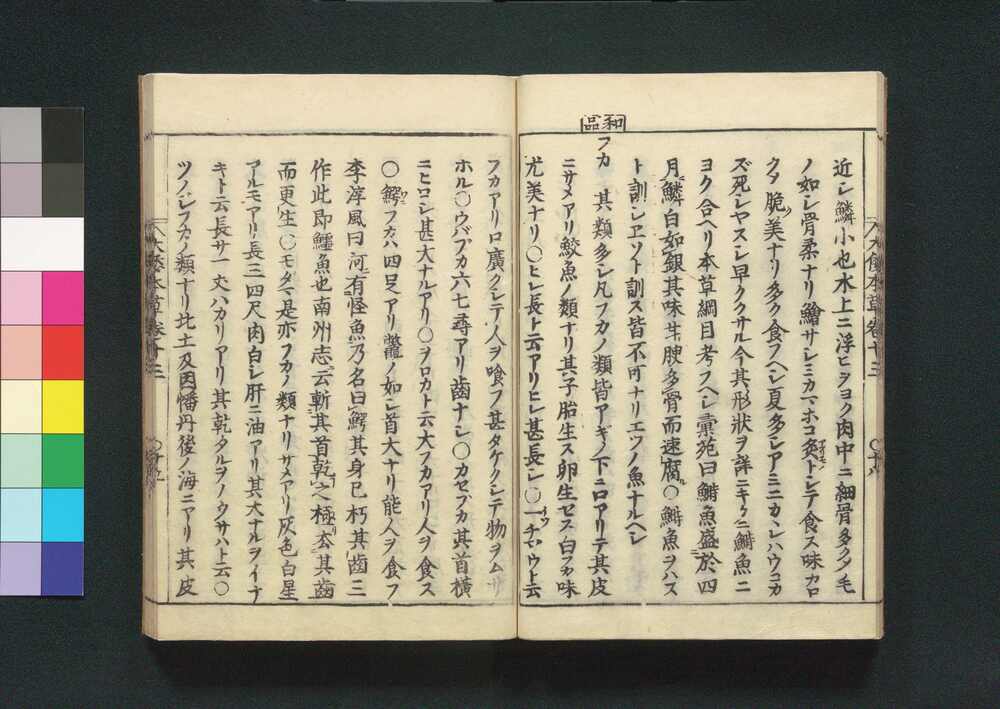 近シ鱗小也水上ニ浮ヒヨク肉中ニ細骨多クタ毛
ノ如シ骨柔ナリ鱠サシミカマホコ炙トシテ食ス味カロ
クタ脆美ナリ多ク食フヘシ夏多シアミニカヽレハウコカ
ズ死シヤスシ早ククサル今其形狀ヲ詳ニキクニ鰣魚ニ
ヨク合ヘリ本草綱目考フヘシ彙苑曰鰣魚盛於四
月鱗白如銀其味甘腴多骨而速腐○鰣魚ヲハス
ト訓シヱソト訓ス皆不可ナリエツノ魚ナルヘシ
和品
フカ 其類多シ凡フカノ類皆アギノ下ニ口アリテ其皮
ニサメアリ鮫魚ノ類ナリ其子胎生ス卵生セス白フカ味
尤美ナリ○ヒレ長ト云アリヒレ甚長シ○一チヤウト云
フカアリ口廣クシテ人ヲ喰フ甚タケクシテ物ヲムサ
ホル○ウバブカ六七尋アリ齒ナシ○カセブカ其首橫
ニヒロシ甚大ナルアリ○ヲロカト云大フカアリ人ヲ食ス
○鰐フカハ四足アリ鼈ノ如シ首大ナリ能人ヲ食フ
李淳風曰河有怪魚乃名曰鰐其身已朽其齒三
作此即鱷魚也南州志云斬其首乾之極去其齒
而更生○モダマ是亦フカノ類ナリサメアリ灰色白星
アルモアリ長三四尺肉白シ肝ニ油アリ其大ナルヲイナ
キト云長サ一丈ハカリアリ其乾タルヲノウサハト云○
ツノシフカノ類ナリ北土及因幡丹後ノ海ニアリ其皮
大倭本草卷十三